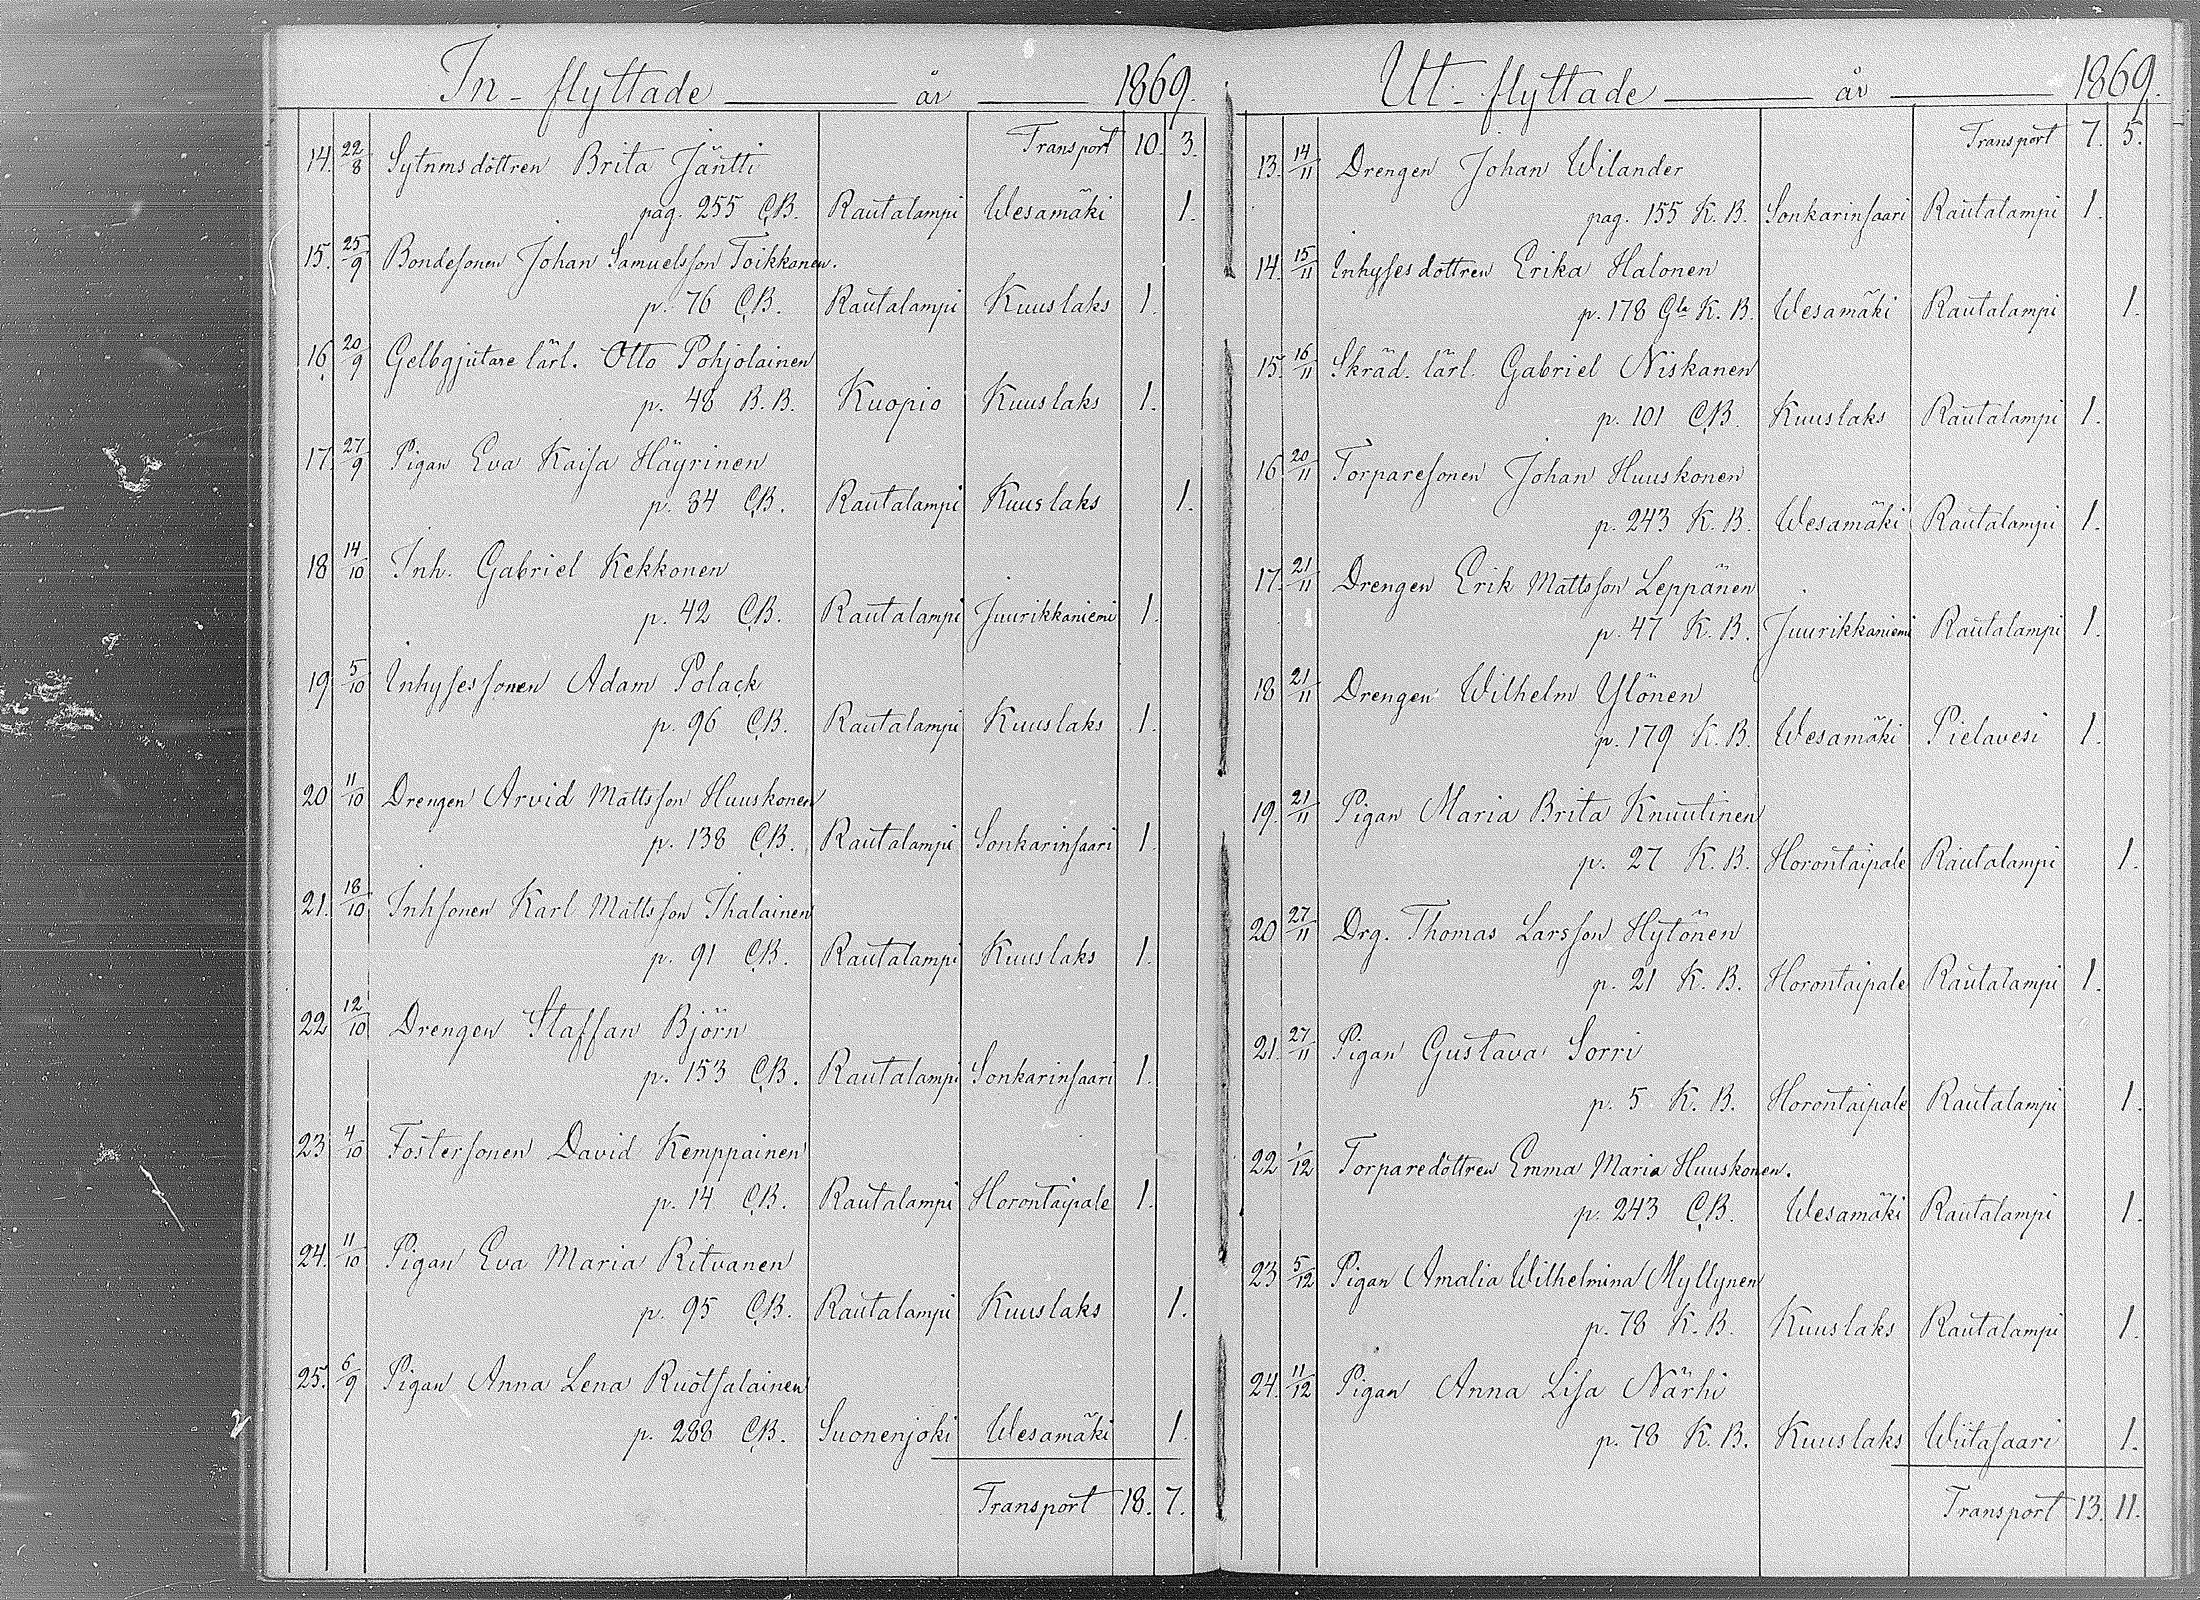 In-flyttade år 1869.
Transport 10. 3.
14. 22/8 Sytnmsdottren Brita Jäntti
pag. 255 C.B. Rautalampi Wesamäki 1.
15. 25/9 Bondesonen Johan Samuelsson Toikkonen.
p. 76 C.B. Rautalampi Kuuslaks 1.
16. 20/9 Gelbgjutare lärl. Otto Pohjolainen
p. 48 B.B. Kuopio Kuuslaks 1.
17. 27/9 Pigan Eva Kaisa Häyrinen
p. 34 C.B. Rautalampi Kuuslaks 1.
18 14/10 Inh. Gabriel Kekkonen
p. 42 C.B. Rautalampi Juurikkaniemi 1.
19 5/10 Inhysessonen Adam Polack
p. 96 C.B. Rautalampi Kuuslaks 1.
20 11/10 Drengen Arvid Mattsson Huuskonen
p. 138 C.B. Rautalampi Sonkarinsaari 1.
21. 18/10 Inhsonen Karl Mattsson Ihalainen
p. 91 C.B. Rautalampi Kuuslaks 1.
22 12/10 Drengen Staffan Björn
p. 153 C.B. Rautalampi Sonkarinsaari 1.
23 4/10 Fostersonen David Kemppainen
p. 14 C.B. Rautalampi Horontaipale 1.
24. 11/10 Pigan Eva Maria Ritvanen
p. 95 C.B. Rautalampi Kuuslaks 1.
25. 6/9 Pigan Anna Lena Ruotsalainen
p. 288 C.B. Suonenjoki Wesamäki 1.
Transport 18. 7.
Ut-flyttade år 1869.
Transport 7. 5.
13. 14/11 Drengen Johan Wilander
pag. 155 K.B. Sonkarinsaari Rautalampi 1.
14. 15/11 Inhysesdottren Erika Halonen
p. 178 Gla K.B. Wesamäki Rautalampi 1.
15. 16/11 Skräd. lärl. Gabriel Niskanen
p. 101 C.B. Kuuslaks Rautalampi 1.
16 20/11 Torparesonen Johan Huuskonen
p. 243 K.B. Wesamäki Rautalampi 1.
17. 21/11 Drengen Erik Mattsson Leppänen
p. 47 K.B. Juurikkaniemi Rautalampi 1.
18 21/11 Drengen Wilhelm Ylönen
p. 179 K.B. Wesamäki Pielavesi 1.
19. 21/11 Pigan Maria Brita Knuutinen
p. 27 K.B. Horontaipale Rautalampi 1.
20 27/11 Drg. Thomas Larsson Hytönen
p. 21 K.B. Horontaipale Rautalampi 1.
21. 27/11 Pigan Gustava Sorri
p. 5 K.B. Horontaipale Rautalampi 1.
22 1/12 Torparedottren Emma Maria Huuskonen.
p. 243 C.B. Wesamäki Rautalampi 1.
23 5/12 Pigan Amalia Wilhelmina Myllynen
p. 78 K.B. Kuuslaks Rautalampi 1.
24. 11/12 Pigan Anna Lisa Närhi
p. 78 K.B. Kuuslaks Wiitasaari 1.
Transport 13. 11.